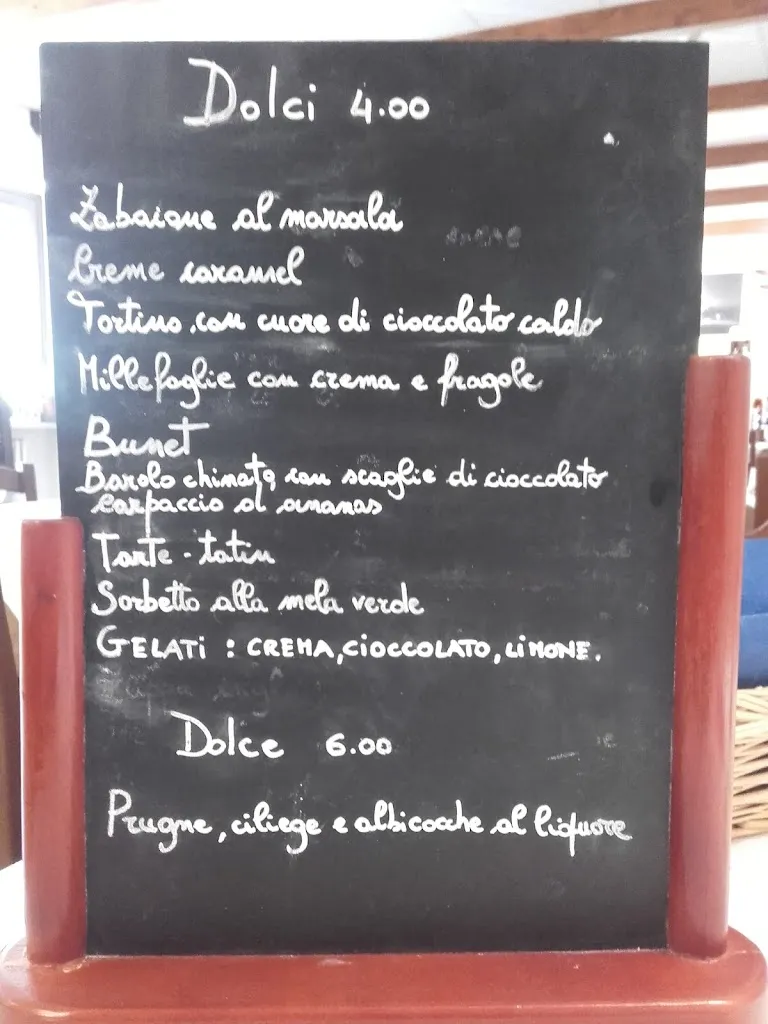 Dolci 4.00
Zabaione al marsala
Creme caramel
Tortino con cuore di cioccolato caldo
Millefoglie con crema e fragole
Bunet
Barolo chinato con scaglie di cioccolato
Carpaccio di ananas
Tarte-tatin
Sorbetto alla mela verde
GELATI : CREMA, CIOCCOLATO, LIMONE.
Dolce 6.00
Prugne, ciliege e albicocche al liquore